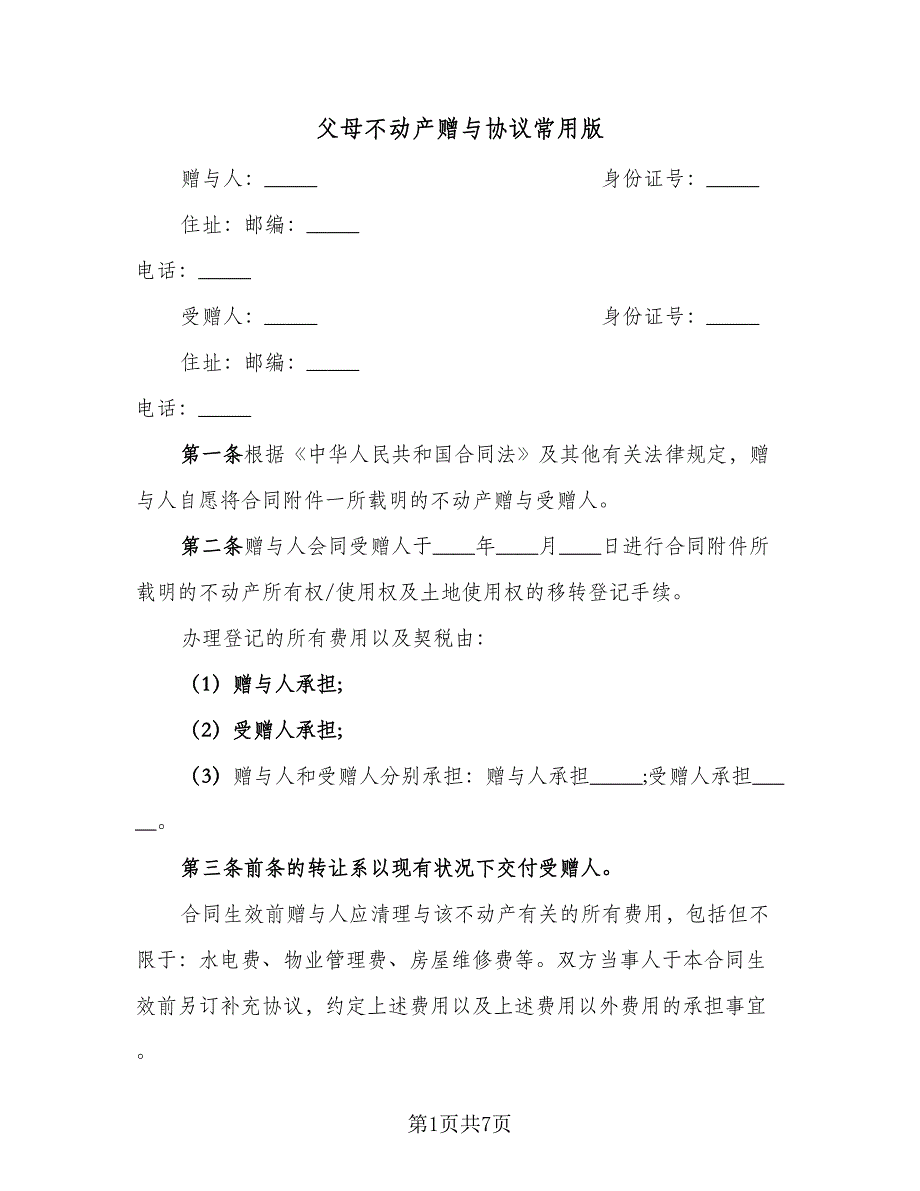 父母不动产赠与协议常用版
赠与人：_____ 身份证号：_____
住址：邮编：_____
电话：_____
受赠人：_____ 身份证号：_____
住址：邮编：_____
电话：_____
第一条根据《中华人民共和国合同法》及其他有关法律规定，赠
与人自愿将合同附件一所载明的不动产赠与受赠人。
第二条赠与人会同受赠人于____年____月____日进行合同附件所
载明的不动产所有权/使用权及土地使用权的移转登记手续。
办理登记的所有费用以及契税由：
（1）赠与人承担;
（2）受赠人承担;
（3）赠与人和受赠人分别承担：赠与人承担_____;受赠人承担___
__。
第三条前条的转让系以现有状况下交付受赠人。
合同生效前赠与人应清理与该不动产有关的所有费用，包括但不
限于：水电费、物业管理费、房屋维修费等。双方当事人于本合同生
效前另订补充协议，约定上述费用以及上述费用以外费用的承担事宜
。
第1页共7页